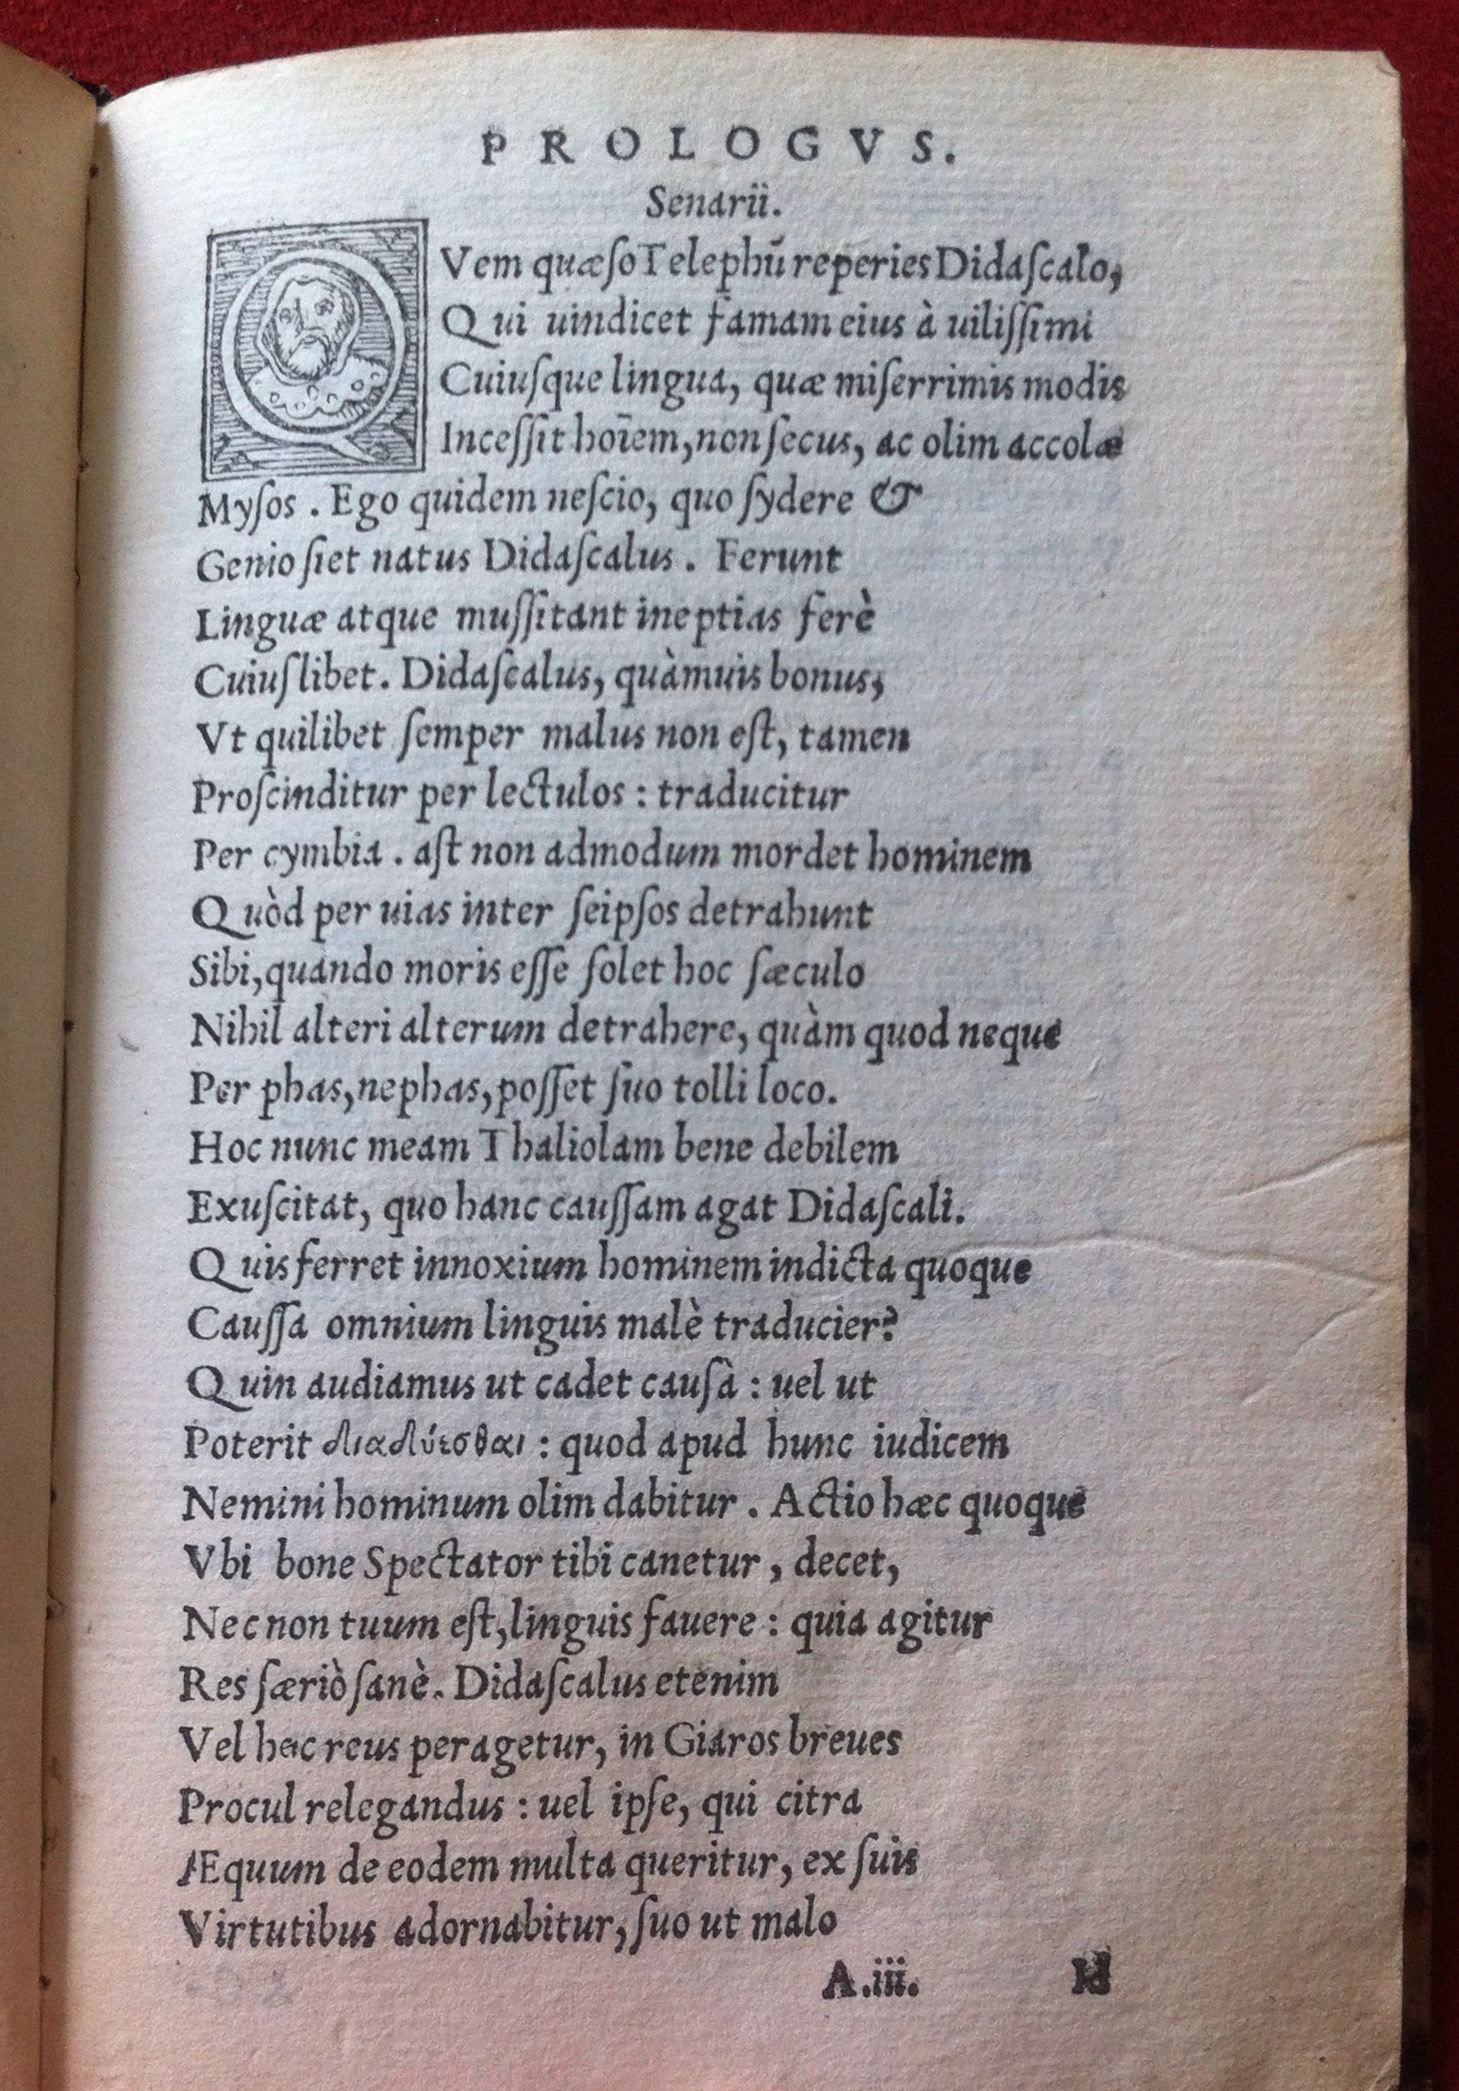 PROLOGVS.
Senarii.
QVem quæſo Telephū reperies Didaſcalo,
Qui uindicet famam eius à uiliſſimi
Cuiuſque lingua, quæ miſerrimis modis
Inceſſit hoīem, non ſecus, ac olim accolæ
Myſos. Ego quidem neſcio, quo ſydere &
Genio ſiet natus Didaſcalus. Ferunt
Linguæ atque muſſitant ineptias ferè
Cuiuſlibet. Didaſcalus, quàmuis bonus,
Vt quilibet ſemper malus non eſt, tamen
Proſcinditur per lectulos: traducitur
Per cymbia. aſt non admodum mordet hominem
Quòd per uias inter ſeipſos detrahunt
Sibi, quando moris eſſe ſolet hoc ſæculo
Nihil alteri alterum detrahere, quàm quod neque
Per phas, nephas, poſſet ſuo tolli loco.
Hoc nunc meam Thaliolam bene debilem
Exuſcitat, quo hanc cauſſam agat Didaſcali.
Quis ferret innoxium hominem indicta quoque
Cauſſa omnium linguis malè traducier?
Quin audiamus ut cadet cauſà: uel ut
Poterit διαδύεσθαι: quod apud hunc iudicem
Nemini hominum olim dabitur. Actio hæc quoque
Vbi bone Spectator tibi canetur, decet,
Nec non tuum eſt, linguis fauere: quia agitur
Res ſæriò ſanè. Didaſcalus etenim
Vel hac reus peragetur, in Giaros breues
Procul relegandus: uel ipſe, qui citra
Æquum de eodem multa queritur, ex ſuis
Virtutibus adornabitur, ſuo ut malo
A.iii. Id